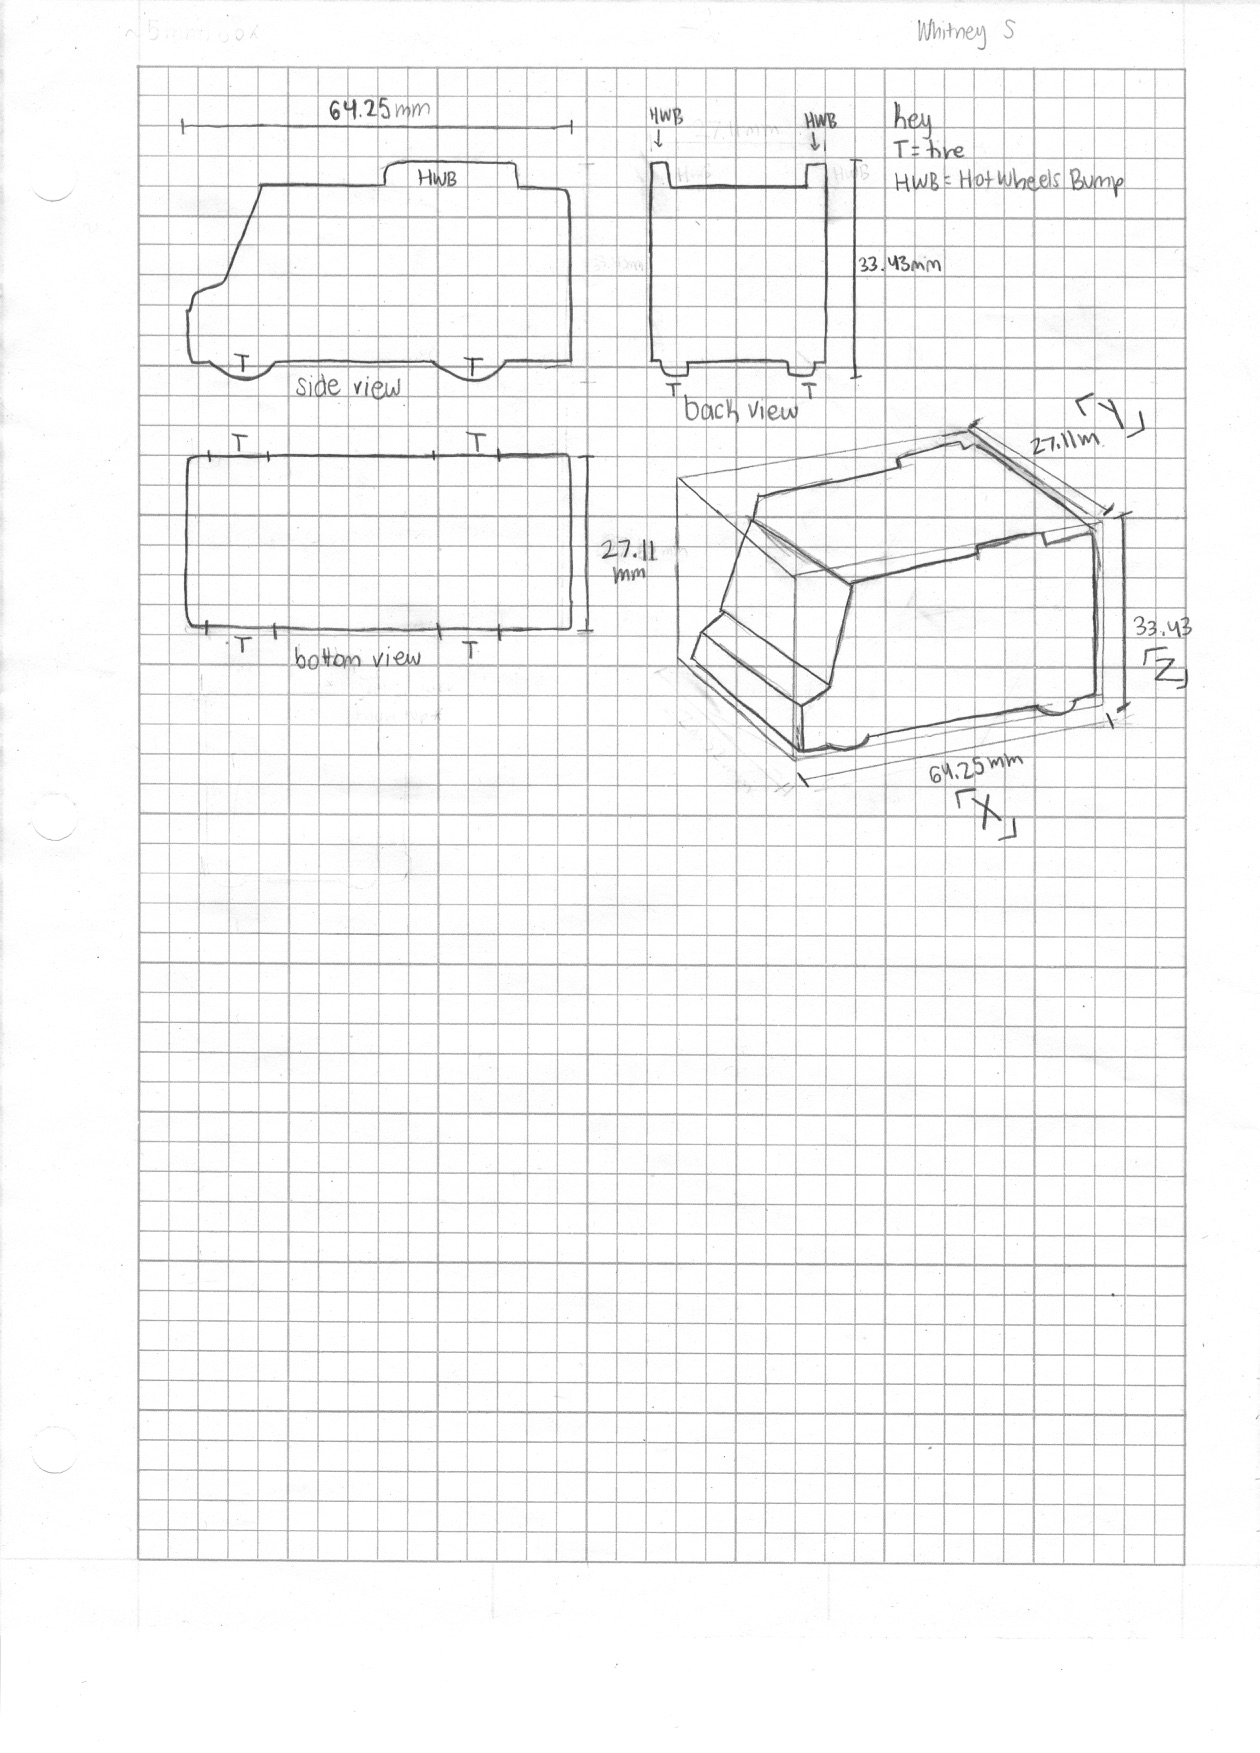 Whitney S
64.25mm
HWB
side view
T
T
HWB
HWB
33.43mm
T
T
back view
key
T = tire
HWB = Hot Wheels Bump
T
T
27.11
mm
T
T
bottom view
27.11m
「Y」
33.43
「Z」
64.25mm
「X」